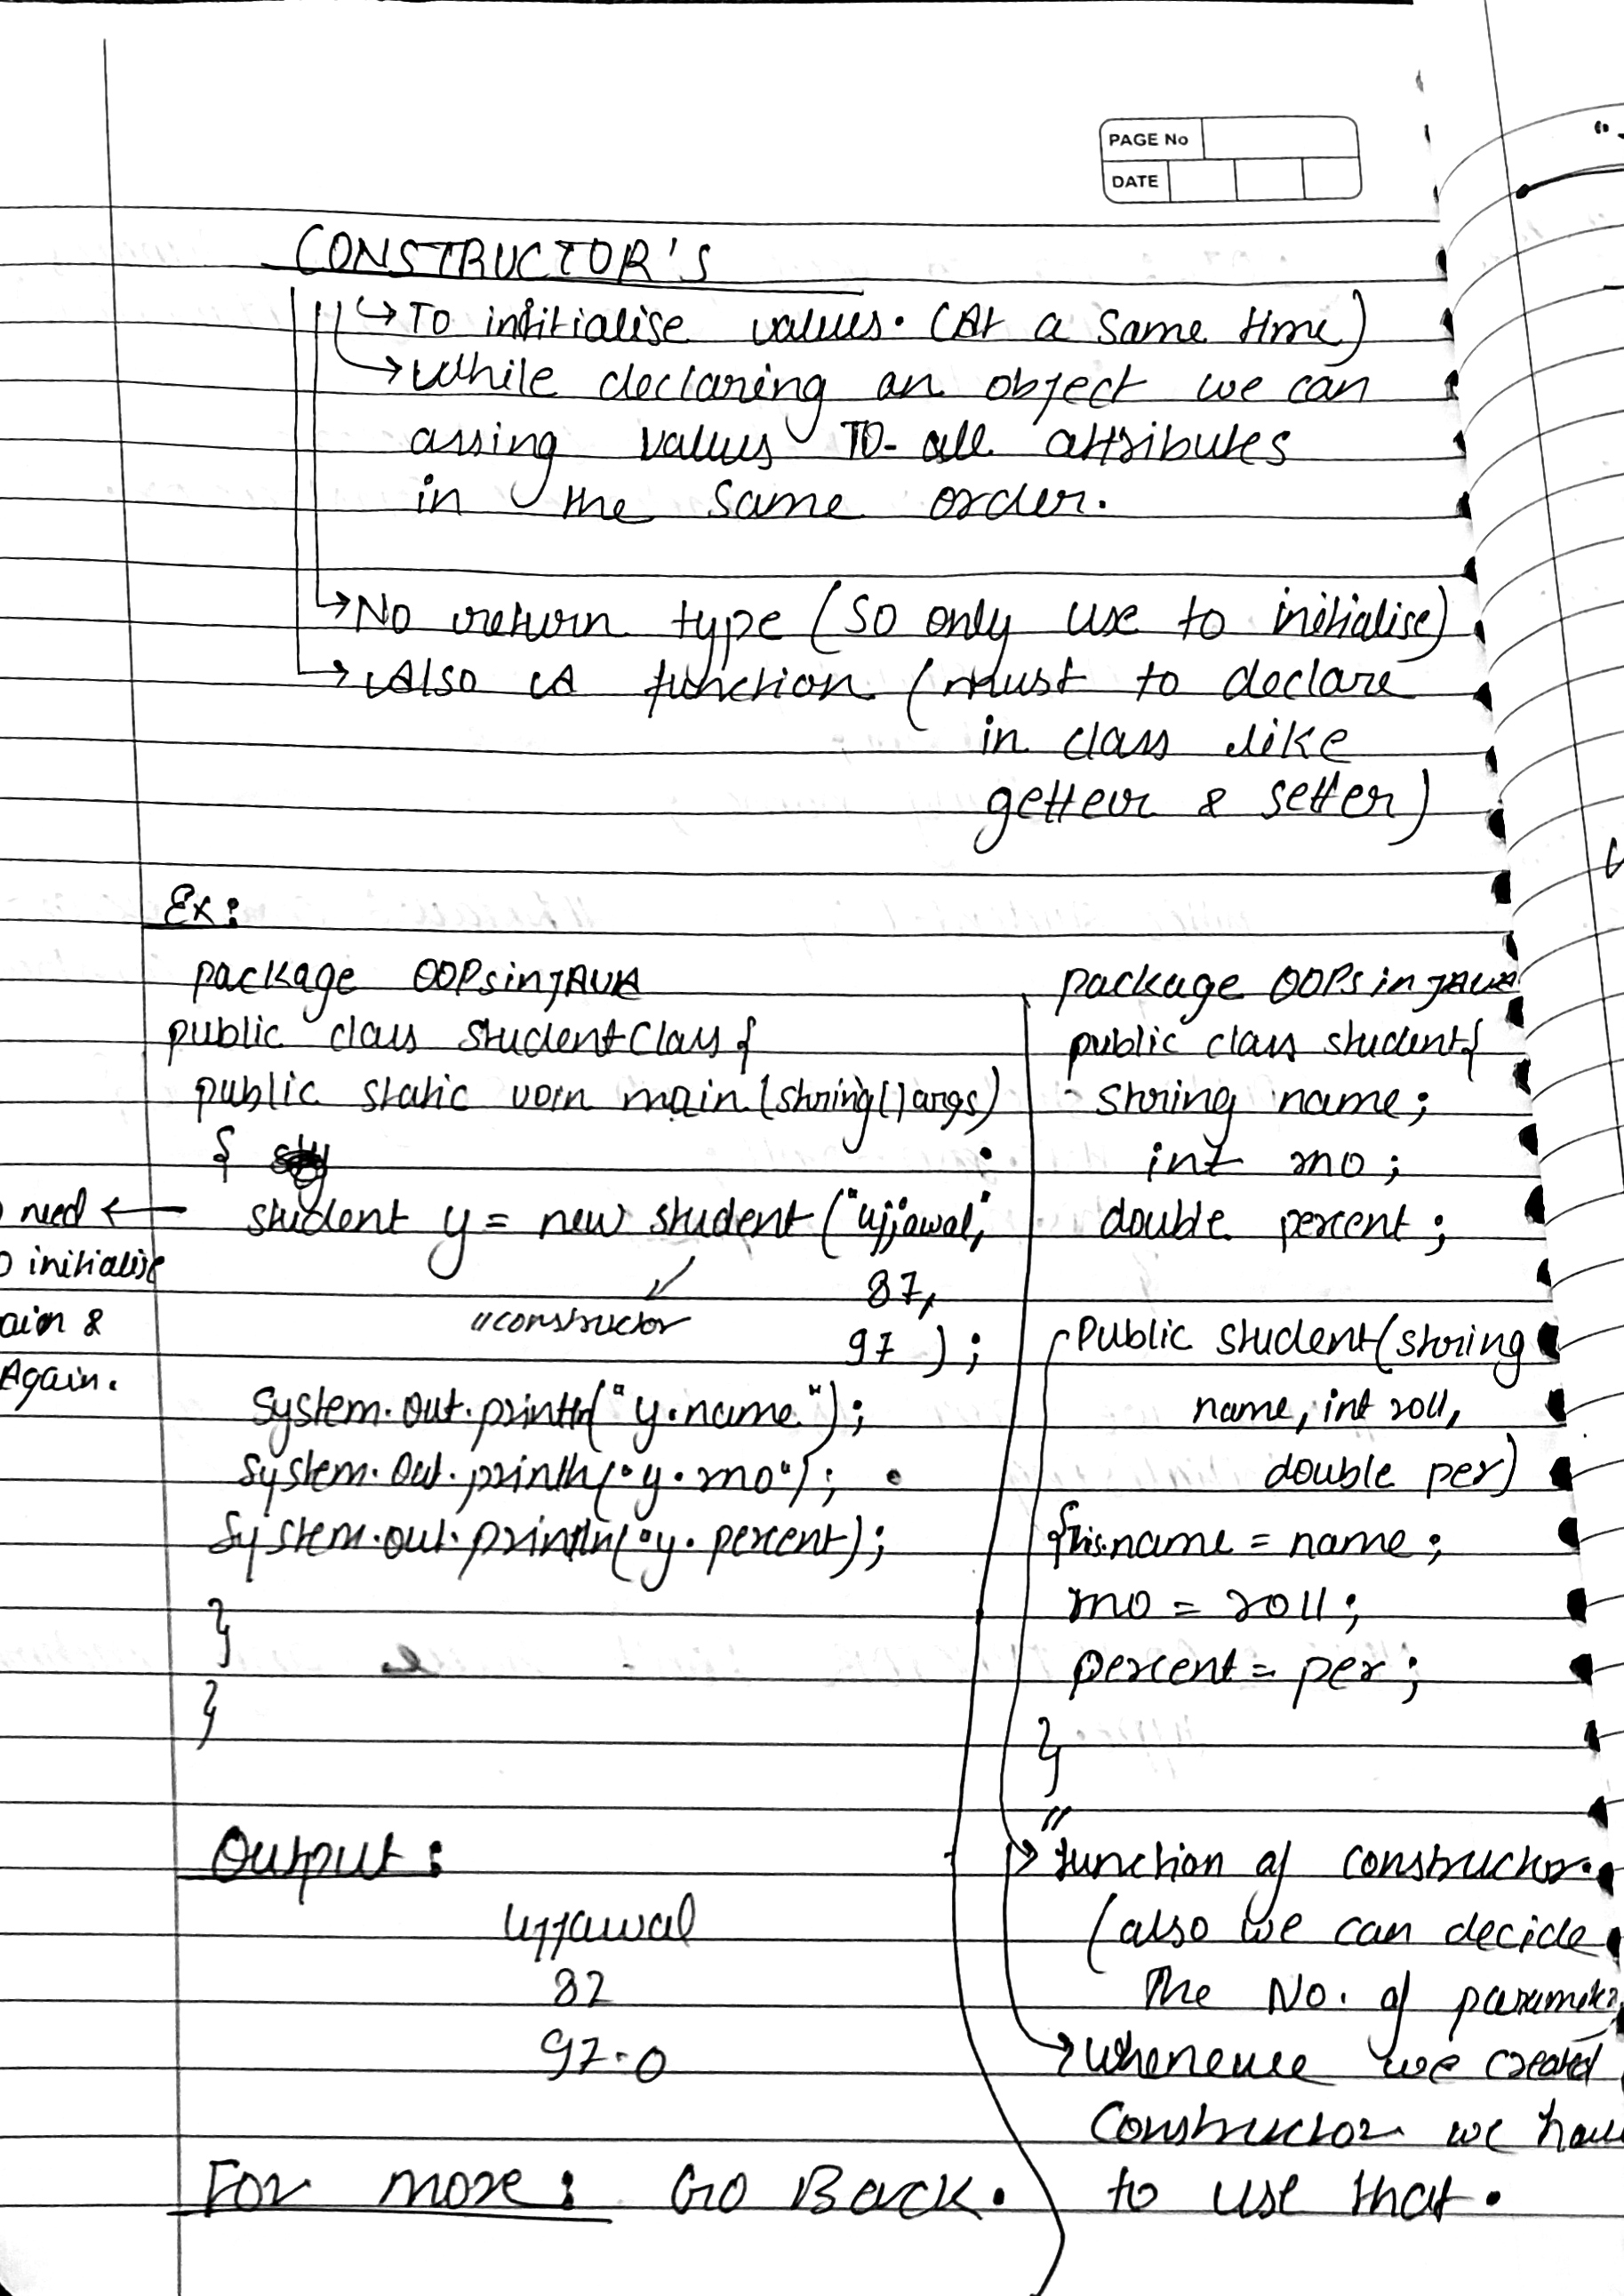 PAGE No
DATE
CONSTRUCTOR'S
→ To initialise values. (At a same time)
→ While declaring an object we can
assing values TO all attributes
in the same order.
→ No return type (so only use to initialise)
→ Also A function (must to declare
in class like
getter & setter)
Ex:
package OOPsinJAVA
public class studentClass {
public static void main (string[] args)
{
student y = new student ("ujjawal",
87,
97 );
// constructor
need ←
initialise
&
Again.
System.out.println("y.name");
System.out.println("y.rno");
System.out.println("y.percent);
}
}
Output:
Ujjawal
87
97.0
For more: Go Back.
package OOPsinJAVA
public class student{
string name;
int rno;
double percent;
Public student(string
name, int roll,
double per)
{this.name = name;
rno = roll;
percent = per;
}
//
→ function of constructor.
(also we can decide
The No. of
→ whenever we created
Constructor we
to use that.